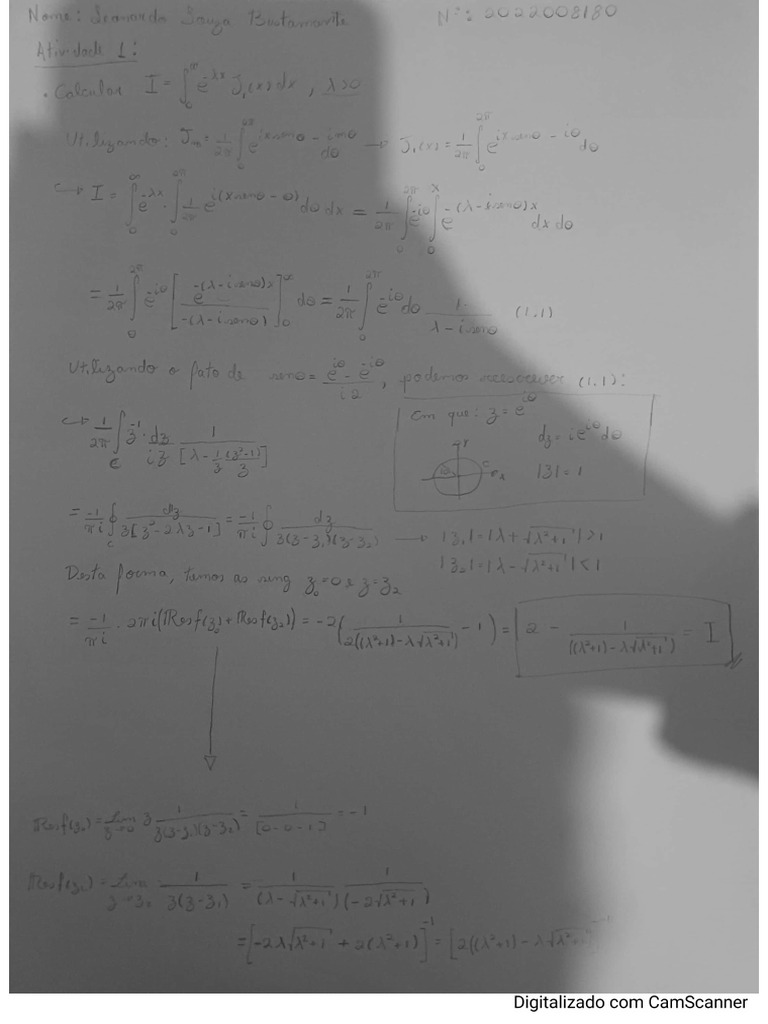 Nome: Leonardo Souza Bustamante Nº: 2022008180
Atividade 1:
• Calcular I = ∫₀^∞ e^{-λx} J₁(x) dx , λ>0
Utilizando: Jₘ = 1/2π ∫₀^{2π} e^{ixsenθ - imθ} dθ → J₁(x) = 1/2π ∫₀^{2π} e^{ixsenθ - iθ} dθ
↪ I = ∫₀^∞ e^{-λx} · ∫₀^{2π} 1/2π e^{i(xsenθ - θ)} dθ dx = 1/2π ∫₀^{2π} e^{-iθ} ∫₀^∞ e^{-(λ-isenθ)x} dx dθ
= 1/2π ∫₀^{2π} e^{-iθ} [e^{-(λ-isenθ)x} / -(λ-isenθ)]₀^∞ dθ = 1/2π ∫₀^{2π} e^{-iθ} dθ 1/(λ-isenθ) (1.1)
Utilizando o fato de senθ = (e^{iθ} - e^{-iθ})/i2, podemos reescrever (1.1):
↪ 1/2π ∫_C z^{-1} · dz/iz 1/[λ - 1/2 (z²-1)/z]
Em que: z = e^{iθ}
dz = ie^{iθ}dθ
y
C
θ
x
|z| = 1
= -1/πi ∮_C dz/z[z² - 2λz - 1] = -1/πi ∮ dz/z(z-z₁)(z-z₂) → |z₁| = |λ + √(λ²+1)| > 1
|z₂| = |λ - √(λ²+1)| < 1
Desta forma, temos as sing z₀ = 0 e z = z₂
= -1/πi · 2πi(Resf(z₀) + Resf(z₂)) = -2(1/2((λ²+1) - λ√(λ²+1)) - 1) = 2 - 1/((λ²+1) - λ√(λ²+1)) = I
Resf(z₀) = lim_{z→0} z 1/z(z-z₁)(z-z₂) = 1/[0-0-1] = -1
Resf(z₂) = lim_{z→z₂} 1/z(z-z₁) = 1/(λ - √(λ²+1)) 1/(-2√(λ²+1))
= [-2λ√(λ²+1) + 2(λ²+1)]^{-1} = [2((λ²+1) - λ√(λ²+1))]^{-1}
Digitalizado com CamScanner